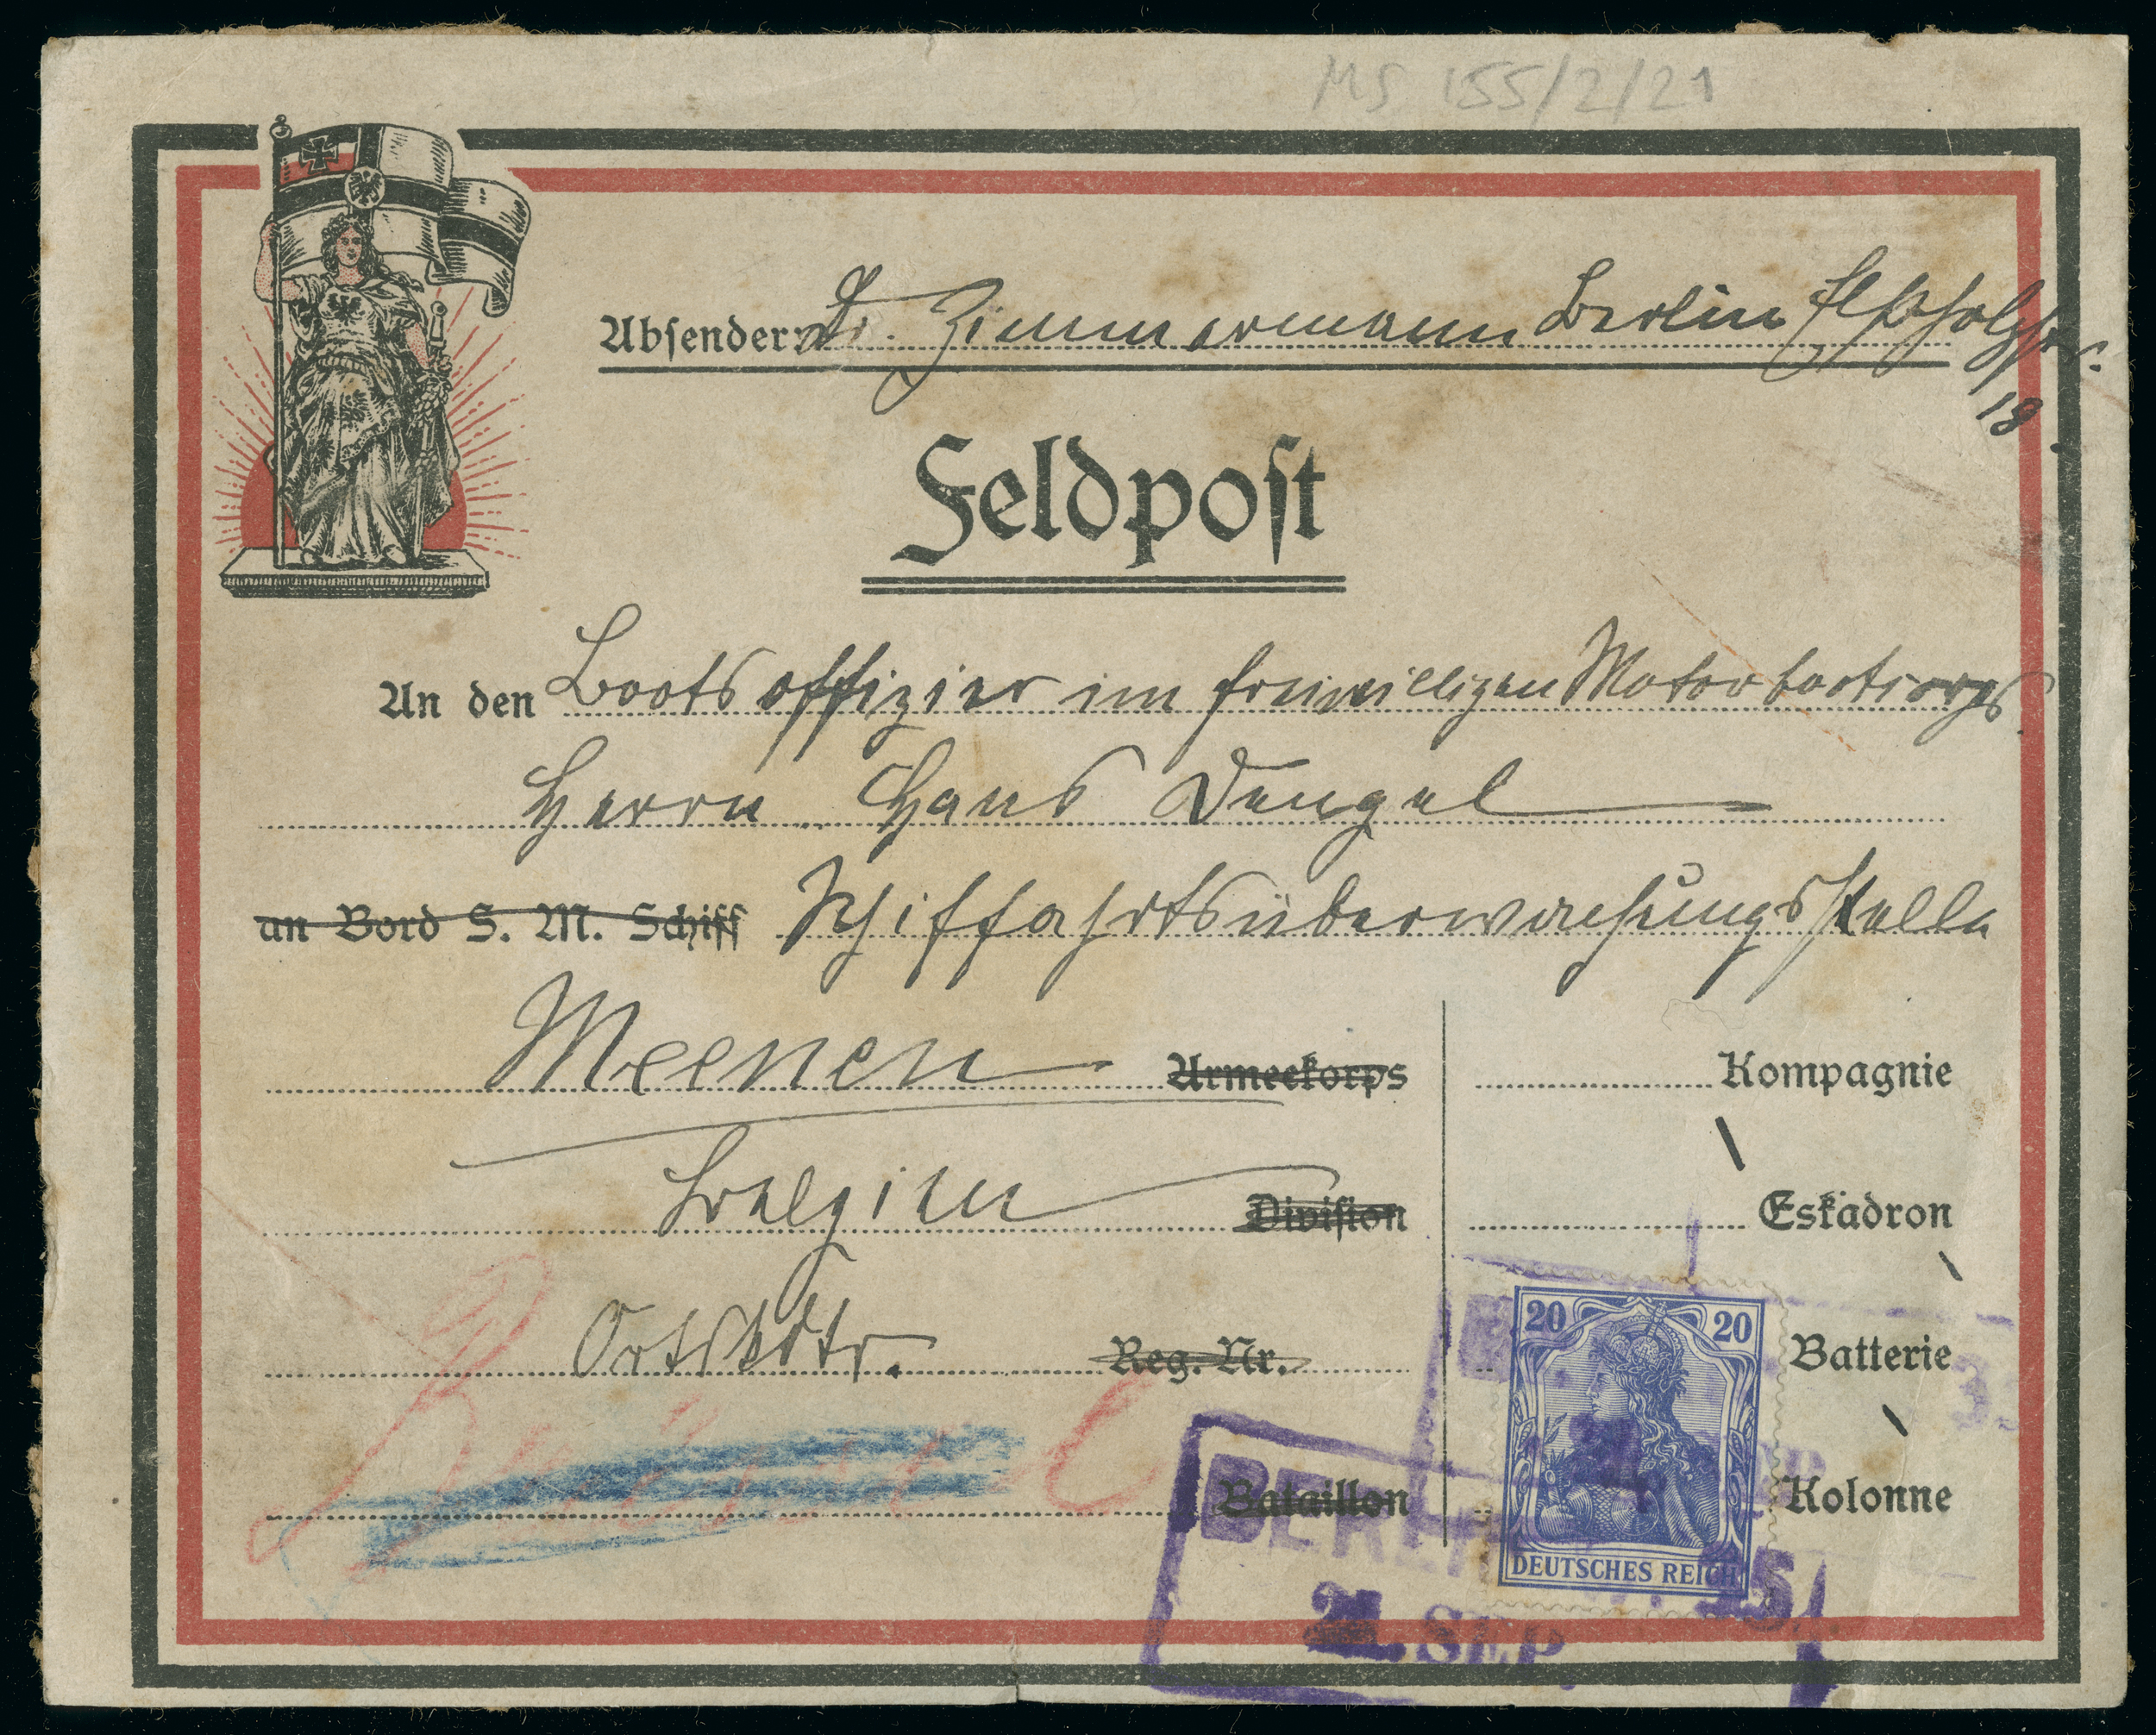 MS 155/2/21
Absender: Dr. Zimmermann Berlin
18.
Feldpost
An den Bootsoffizier im freiwilligen Motorbootcorps
Herrn Hans Dengel
an Bord S. M. Schiff Schiffahrtsüberwachungsstelle
Meenen Armeekorps Kompagnie
Belgien Division Eskadron
Reg. Nr. Batterie
20 20
Brüssel
Bataillon Kolonne
DEUTSCHES REICH
BERLIN
SEP